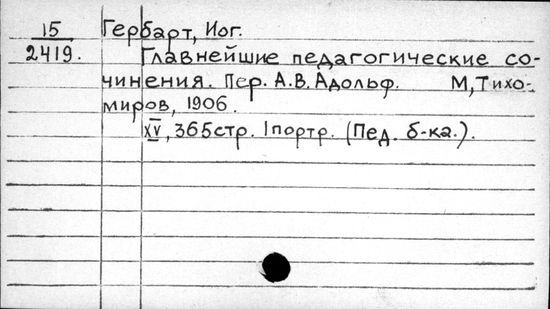 15 Гербарт, Иог.
2419. Главнейшие педагогические со-
чинения. Пер. А.В. Адольф. М, Тихо-
миров, 1906.
XV, 365 стр. 1 портр. (Пед. б-ка.).